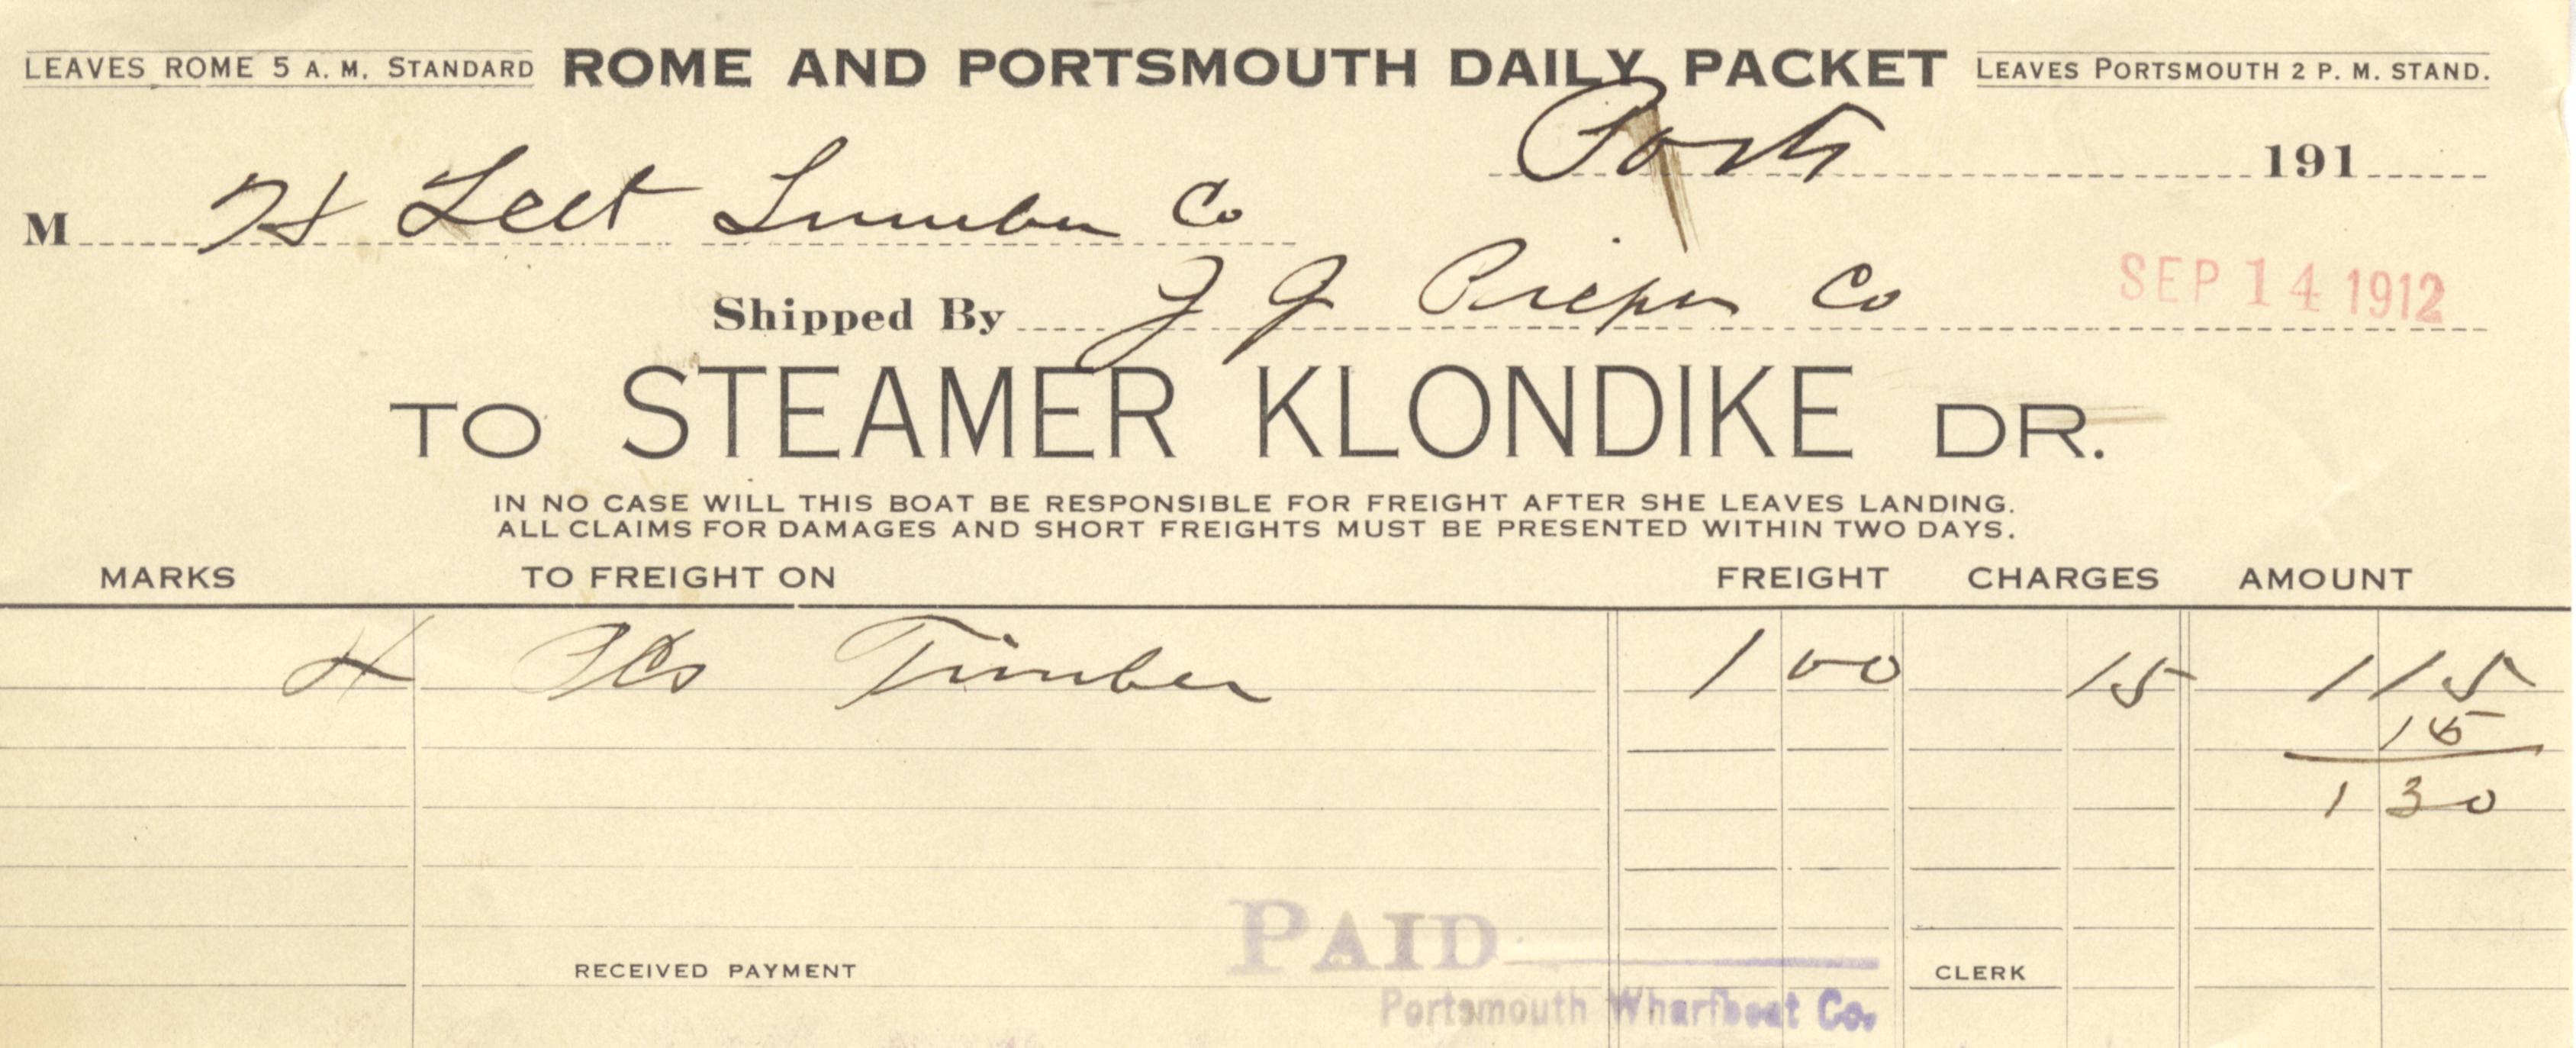 LEAVES ROME 5 A. M. STANDARD ROME AND PORTSMOUTH DAILY PACKET LEAVES PORTSMOUTH 2 P. M. STAND.
Ports 191
M H Leet Lumber Co
Shipped By J G Co SEP 14 1912
TO STEAMER KLONDIKE DR.
IN NO CASE WILL THIS BOAT BE RESPONSIBLE FOR FREIGHT AFTER SHE LEAVES LANDING.
ALL CLAIMS FOR DAMAGES AND SHORT FREIGHTS MUST BE PRESENTED WITHIN TWO DAYS.
MARKS TO FREIGHT ON FREIGHT CHARGES AMOUNT
4 PCs Timber 1 00 15 1 15
15
1 30
PAID
RECEIVED PAYMENT CLERK
Portsmouth Wharfboat Co.